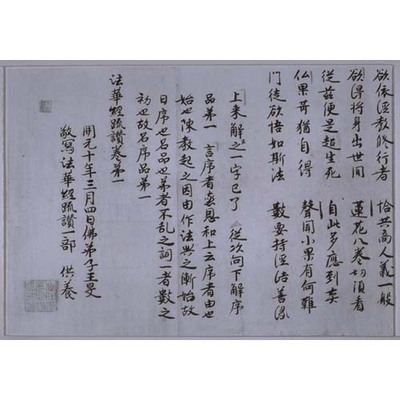 欲依経教修行者 恰共高人義一般
欲得将身出世間 蓮花八卷切須看
従茲便足超生死 自此多應到
仏果 猶自得 聲聞小果有何難
门徒欲悟如斯法 數要持経
上来解之一字已了 從次向下解序
品第一 言序者慈恩和上云序者由也
始也陳教起之因由作法興之漸始故
日序也名品也弟者不乱之詞一者數之
初也故名序品第一
法華經疏讚卷第一
開元十年三月四日佛弟子王旻
敬寫法華經疏讚一部 供養